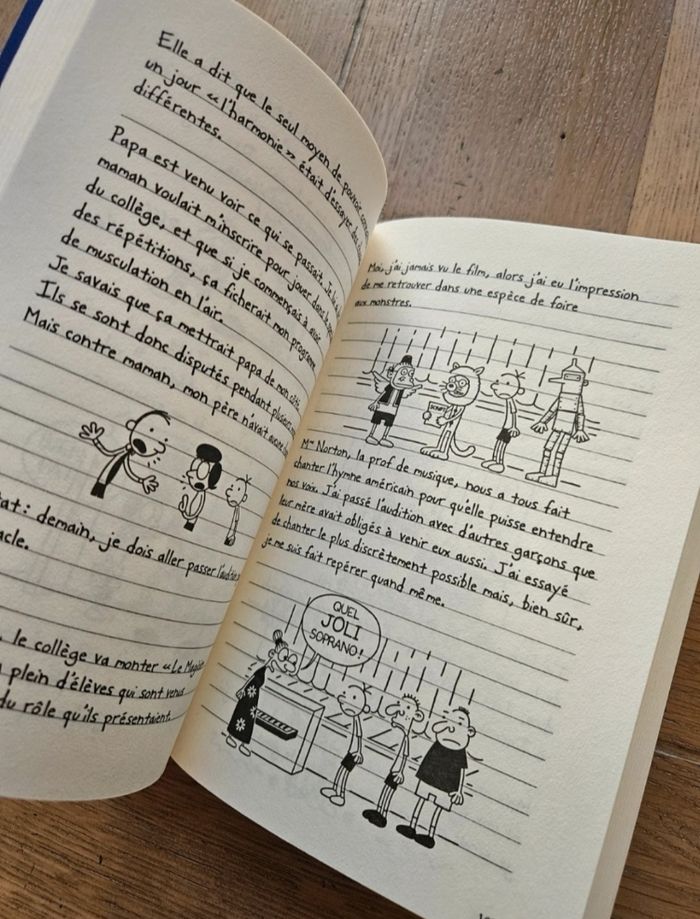 Elle a dit que le seul moyen de pouvoir
un jour « l'harmonie » était d'essayer des
différentes.
Papa est venu voir ce qui se passait. Je lui
maman voulait m'inscrire pour jouer dans
du collège, et que si je commençais à avoir
des répétitions, ça ficherait mon programme
de musculation en l'air.
Je savais que ça mettrait papa de mon côté.
Ils se sont donc disputés pendant plusieurs
Mais contre maman, mon père n'avait aucune
: demain, je dois aller passer l'audition
le collège va monter « Le
plein d'élèves qui sont venus
du rôle qu'ils présentaient.
Moi, j'ai jamais vu le film, alors j'ai eu l'impression
de me retrouver dans une espèce de foire
aux monstres.
SCRIPT
Mme Norton, la prof de musique, nous a tous fait
chanter l'hymne américain pour qu'elle puisse entendre
nos voix. J'ai passé l'audition avec d'autres garçons que
leur mère avait obligés à venir eux aussi. J'ai essayé
de chanter le plus discrètement possible mais, bien sûr,
je me suis fait repérer quand même.
QUEL
JOLI
SOPRANO !